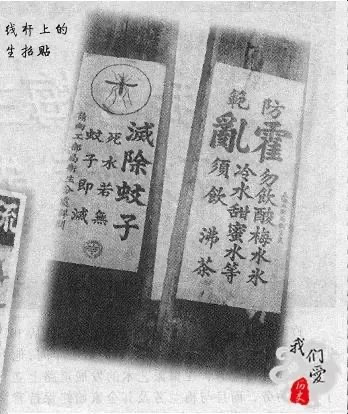 线杆上的
生招贴
滅除蚊子
死水若無
蚊子即滅
防霍
範亂
勿飲酸梅水氷
冷水甜蜜水等
須飲沸茶
我们爱
历史